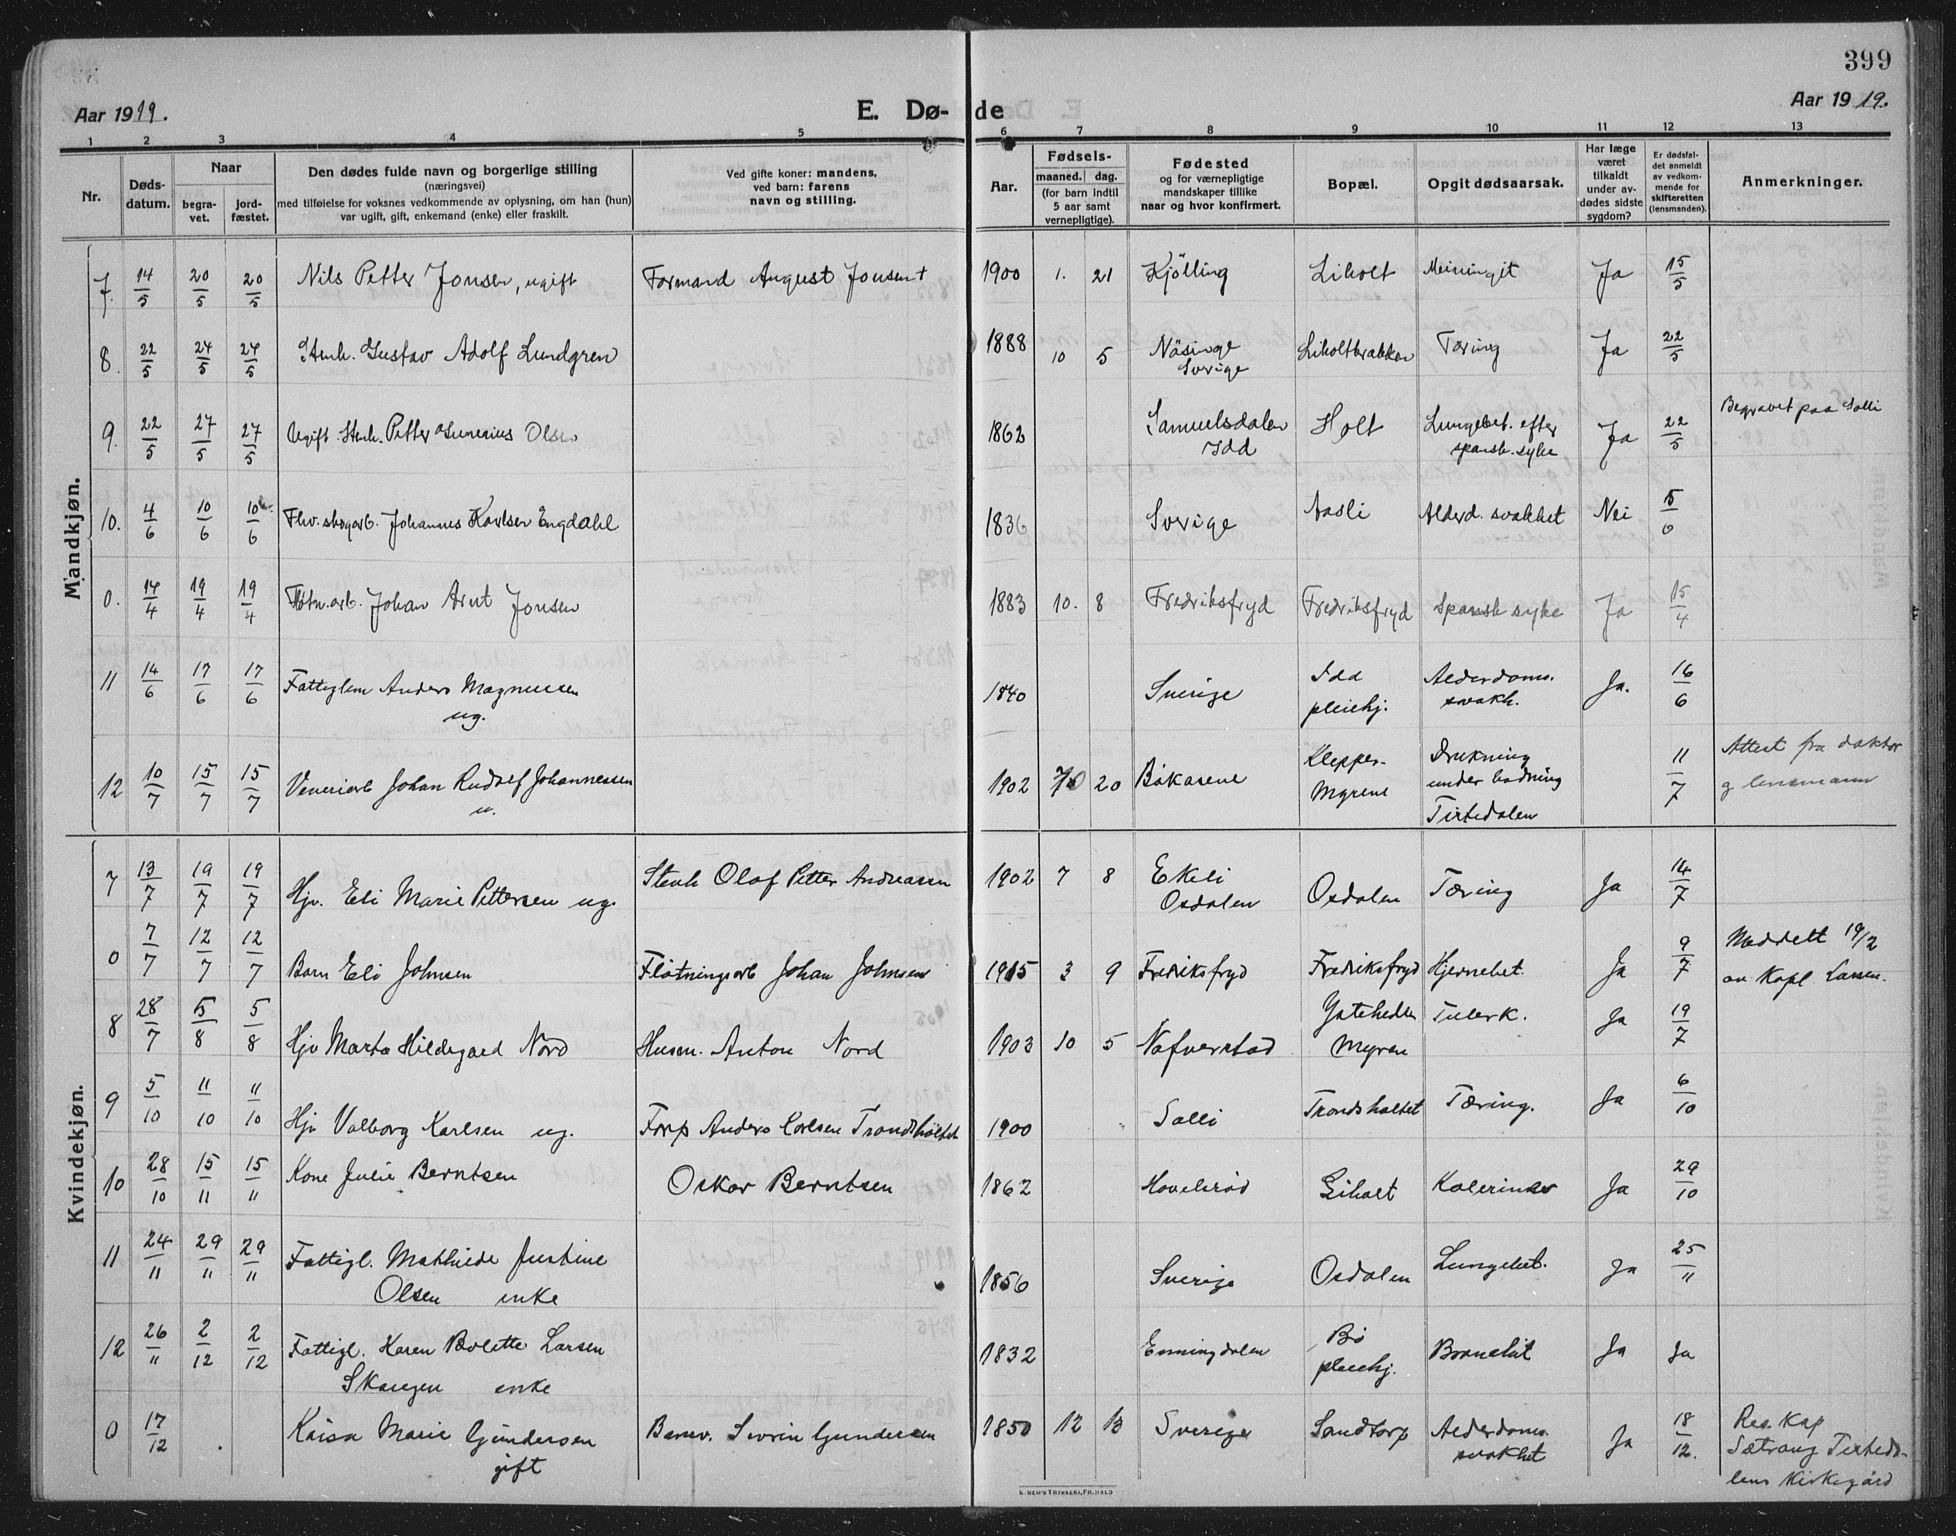 399
Aar 1919.
E. Dø-
de
Aar 1919.
1 2 3 4 5 6 7 8 9 10 11 12 13
Nr.
Døds-
datum.
Naar
begra-
vet.
jord-
fæstet.
Den dødes fulde navn og borgerlige stilling
(næringsvei)
med tilføielse for voksnes vedkommende av oplysning, om han (hun)
var ugift, gift, enkemand (enke) eller fraskilt.
Ved gifte koner: mandens,
ved barn: farens
navn og stilling.
Aar.
Fødsels-
maaned. dag.
(for barn indtil
5 aar samt
vernepligtige).
Fødested
og for værnepligtige
mandskaper tillike
naar og hvor konfirmert.
Bopæl.
Opgit dødsaarsak.
Har læge
været
tilkaldt
under av-
dødes sidste
sygdom?
Er dødsfal-
det anmeldt
av vedkom-
mende for
skifteretten
(lensmanden).
Anmerkninger.
Mandkjøn.
7. 14/5 20/5 20/5 Nils Petter Jonsen, ugift Formand August Jonsen 1900 1. 21 Kjølling Liholt Meiningit Ja 15/5
8. 22/5 24/5 24/5 Gustav Adolf Lundgren 1888 10 5 Näsinge Liholtbrakken Tæring Ja 22/5
Sverige
Begravet paa Solli
9. 22/5 27/5 27/5 Ugift Stenh. Petter Olsen 1862 Samuelsdalen Holt Lungebet. efter Ja 22/5
Idd spansk. syke
10. 4/6 10/6 10/6 Fhv. skogarb. Johannes Karlsen Engdahl 1836 Sverige Aasli Alderd. svakhet Nei 5/6
0. 14/4 19/4 19/4 Fløtn.arb. Johan Arnt Jonsen 1883 10. 8 Fredriksfryd Fredriksfryd Spansk syke Ja 15/4
11 14/6 17/6 17/6 Fattiglem Anders Magnussen 1840 Sverige Idd Alderdoms. Ja. 16/6
ug. pleiehj. svakh.
12 10/7 15/7 15/7 Johan Rudolf Johannessen 1902 20 Båkasene Klepper- Drukning 11/7 Attest fra doktor
u. Myrene under badning og lensmann
Tistedalen
Kvindekjøn.
7 13/7 19/7 19/7 Hjv. Eli Marie Pettersen ug. Stenh Olaf Petter Andreasen 1902 7 8 Ekeli Osdalen Tæring Ja 14/7
Osdalen
0 7/7 12/7 12/7 Barn Eli Johnsen Fløtningsarb Johan Johnsen 1915 3 9 Fredriksfryd Fredriksfryd Hjernebet. Ja 9/7 Meddelt 19/2
av Kapl. Larsen.
8 28/7 5/8 5/8 Hjv Marta Hildegard Nord Husm. Anton Nord 1903 10 5 Nafverstad Tuberk. Ja 19/7
Myren
9 5/10 11/10 11/10 Hjv Valborg Karlsen ug. Forp Anders Carlsen Trondsholtet 1900 Solli Trondsholtet Tæring. Ja 6/10
10 28/10 15/11 15/11 Kone Julie Berntsen Oskar Berntsen 1862 Liholt Ja 29/10
11 24/11 29/11 29/11 Fattigl. Mathilde Justine 1856 Sverige Osdalen Lungebet. Ja 25/11
Olsen enke
12 26/11 2/12 2/12 Fattigl. Karen Bolette Larsen 1832 Enningdalen Bø Ja Ja
Skaugen enke pleiehj.
0 17/12 Kaisa Marie Gundersen Barnev. Sevrin Gundersen 1850 12 13 Sverige Sandtorp Alderdoms Ja 18/12. Res Kap
gift svakhet Sætrang Tisteda-
lens Kirkegård